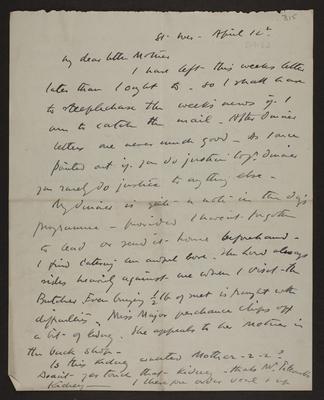 315
St Ives - April 14th
My dear little Mother
I have left this weeks letter
later than I ought to - so I shall have
to steeplechase the weeks news if I
am to catch the mail - After Dinner
letters are never much good - As I once
pointed out if you do justice to yr. Dinner
you rarely do justice to anything else -
My Dinner is quite a note in the day's
programme - provided I havent forgotten
to lead or send it home beforehand -
I find catering an awful bore. The herd always
sides heavily against me when I visit the
Butcher. Even buying ½ lb of meat is fraught with
difficulties. Miss Major perchance chips off
a bit of kidney. She appeals to her Mother in
the back shop -
Is this kidney wanted Mother-2-2?
Don't you touch that kidney - thats Mr.
Kidney - I then order veal & up